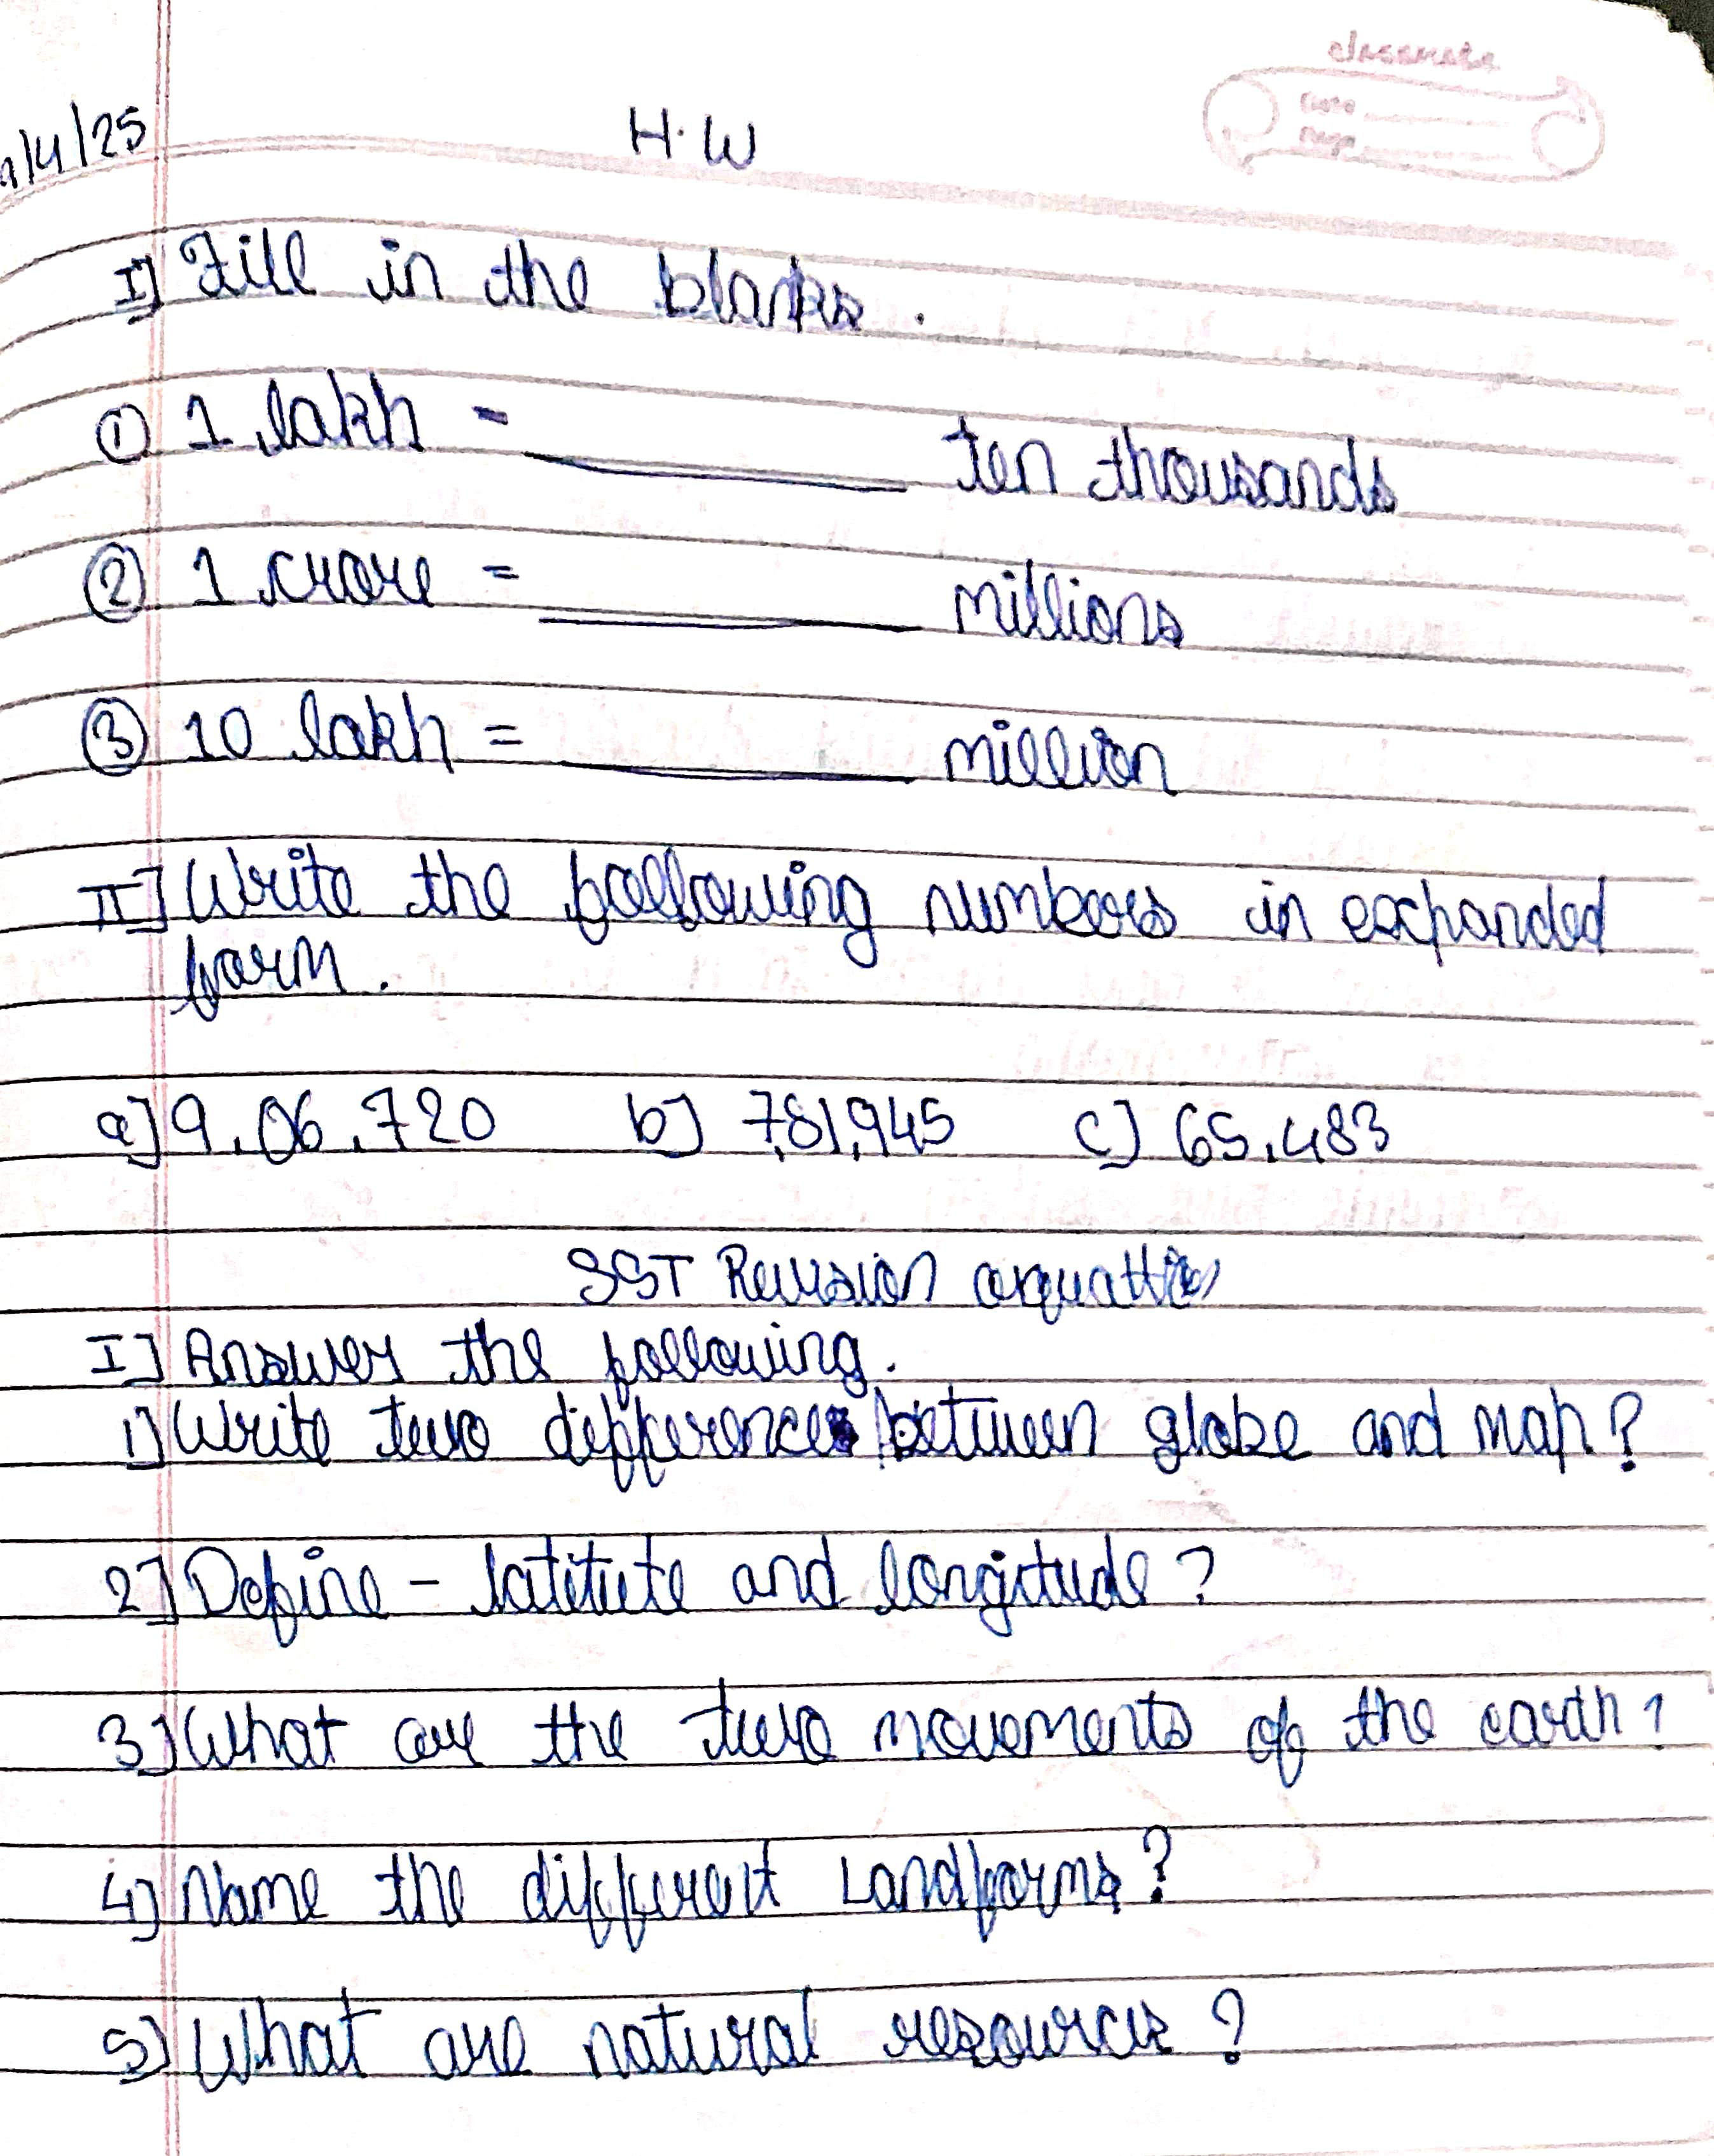 /4/25
H.W
classmate
Date
Page
I] Fill in the blanks.
① 1 lakh = ______ ten thousands
② 1 crore = ______ millions
③ 10 lakh = ______ million
II] Write the following numbers in expanded
form.
a] 9,06,720 b] 7,81,945 c] 65,483
SST Revision
I] Answer the following.
1] Write two differences between globe and map?
2] Define - latitute and longitude?
3] What are the two movements of the earth?
4] Name the different Landforms?
5] What are natural resources?